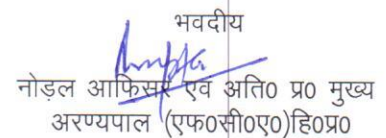 भवदीय
नोड़ल आफिसर एवं अति0 प्र0 मुख्य
अरण्यपाल (एफ0सी0ए0)हि0प्र0